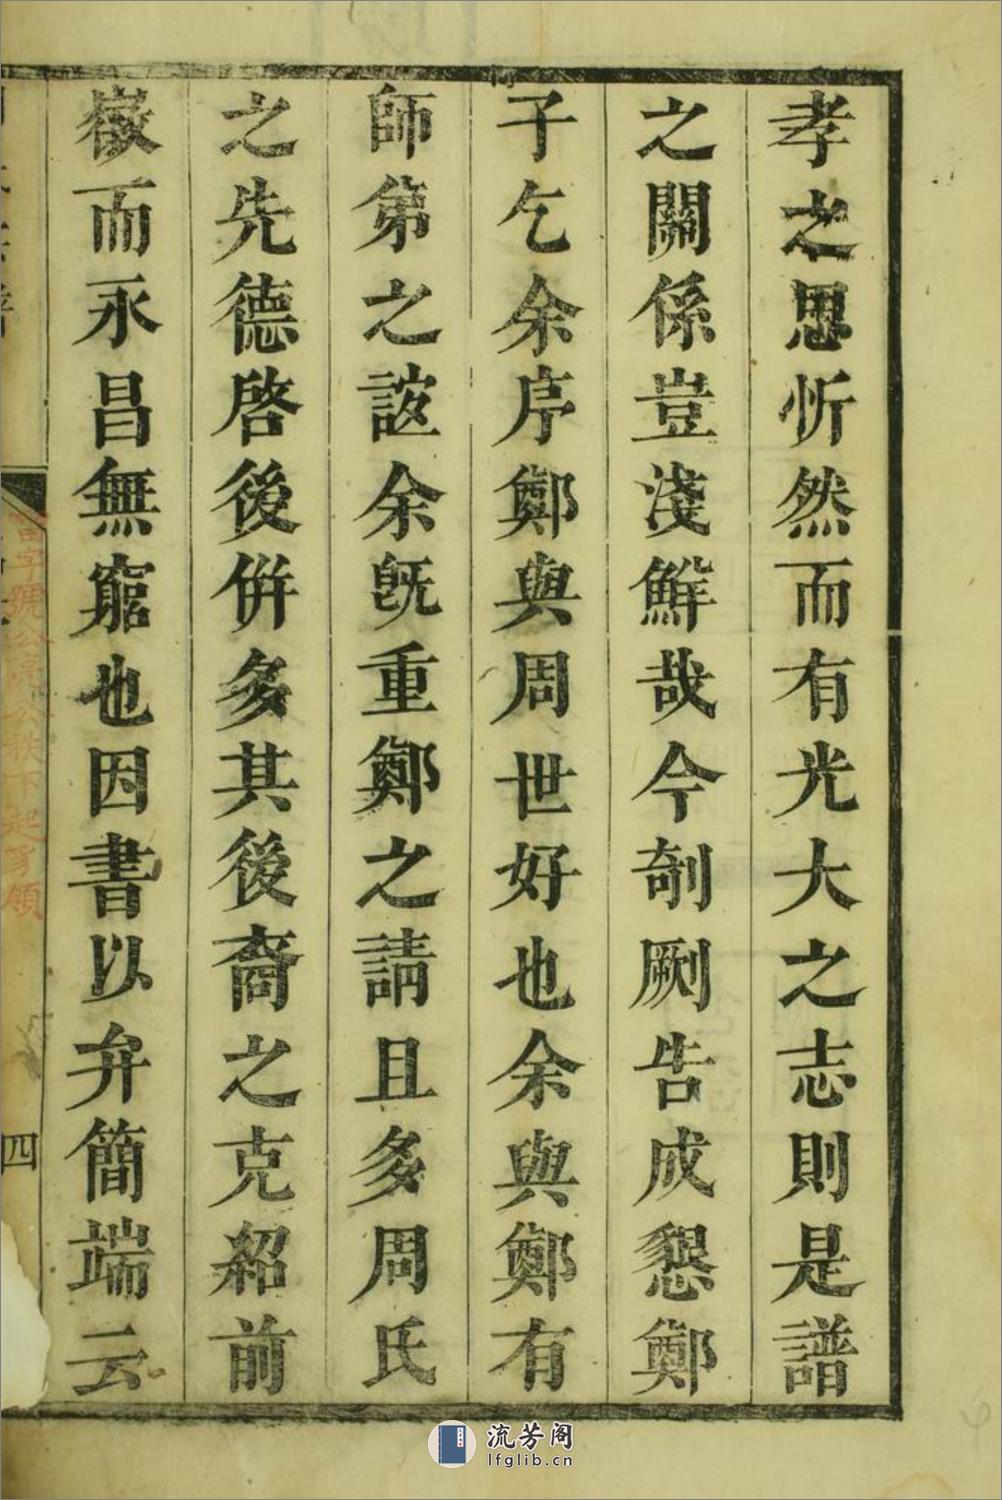 孝之思忻然而有光大之志則是譜
之關係豈淺鮮哉今剞劂告成懇鄭
子乞余序鄭與周世好也余與鄭有
師第之誼余旣重鄭之請且多周氏
之先德啓後併多其後裔之克紹前
徽而永昌無窮也因書以弁簡端云
四
字號公亮公秩下起房領
流芳阁
lfglib.cn